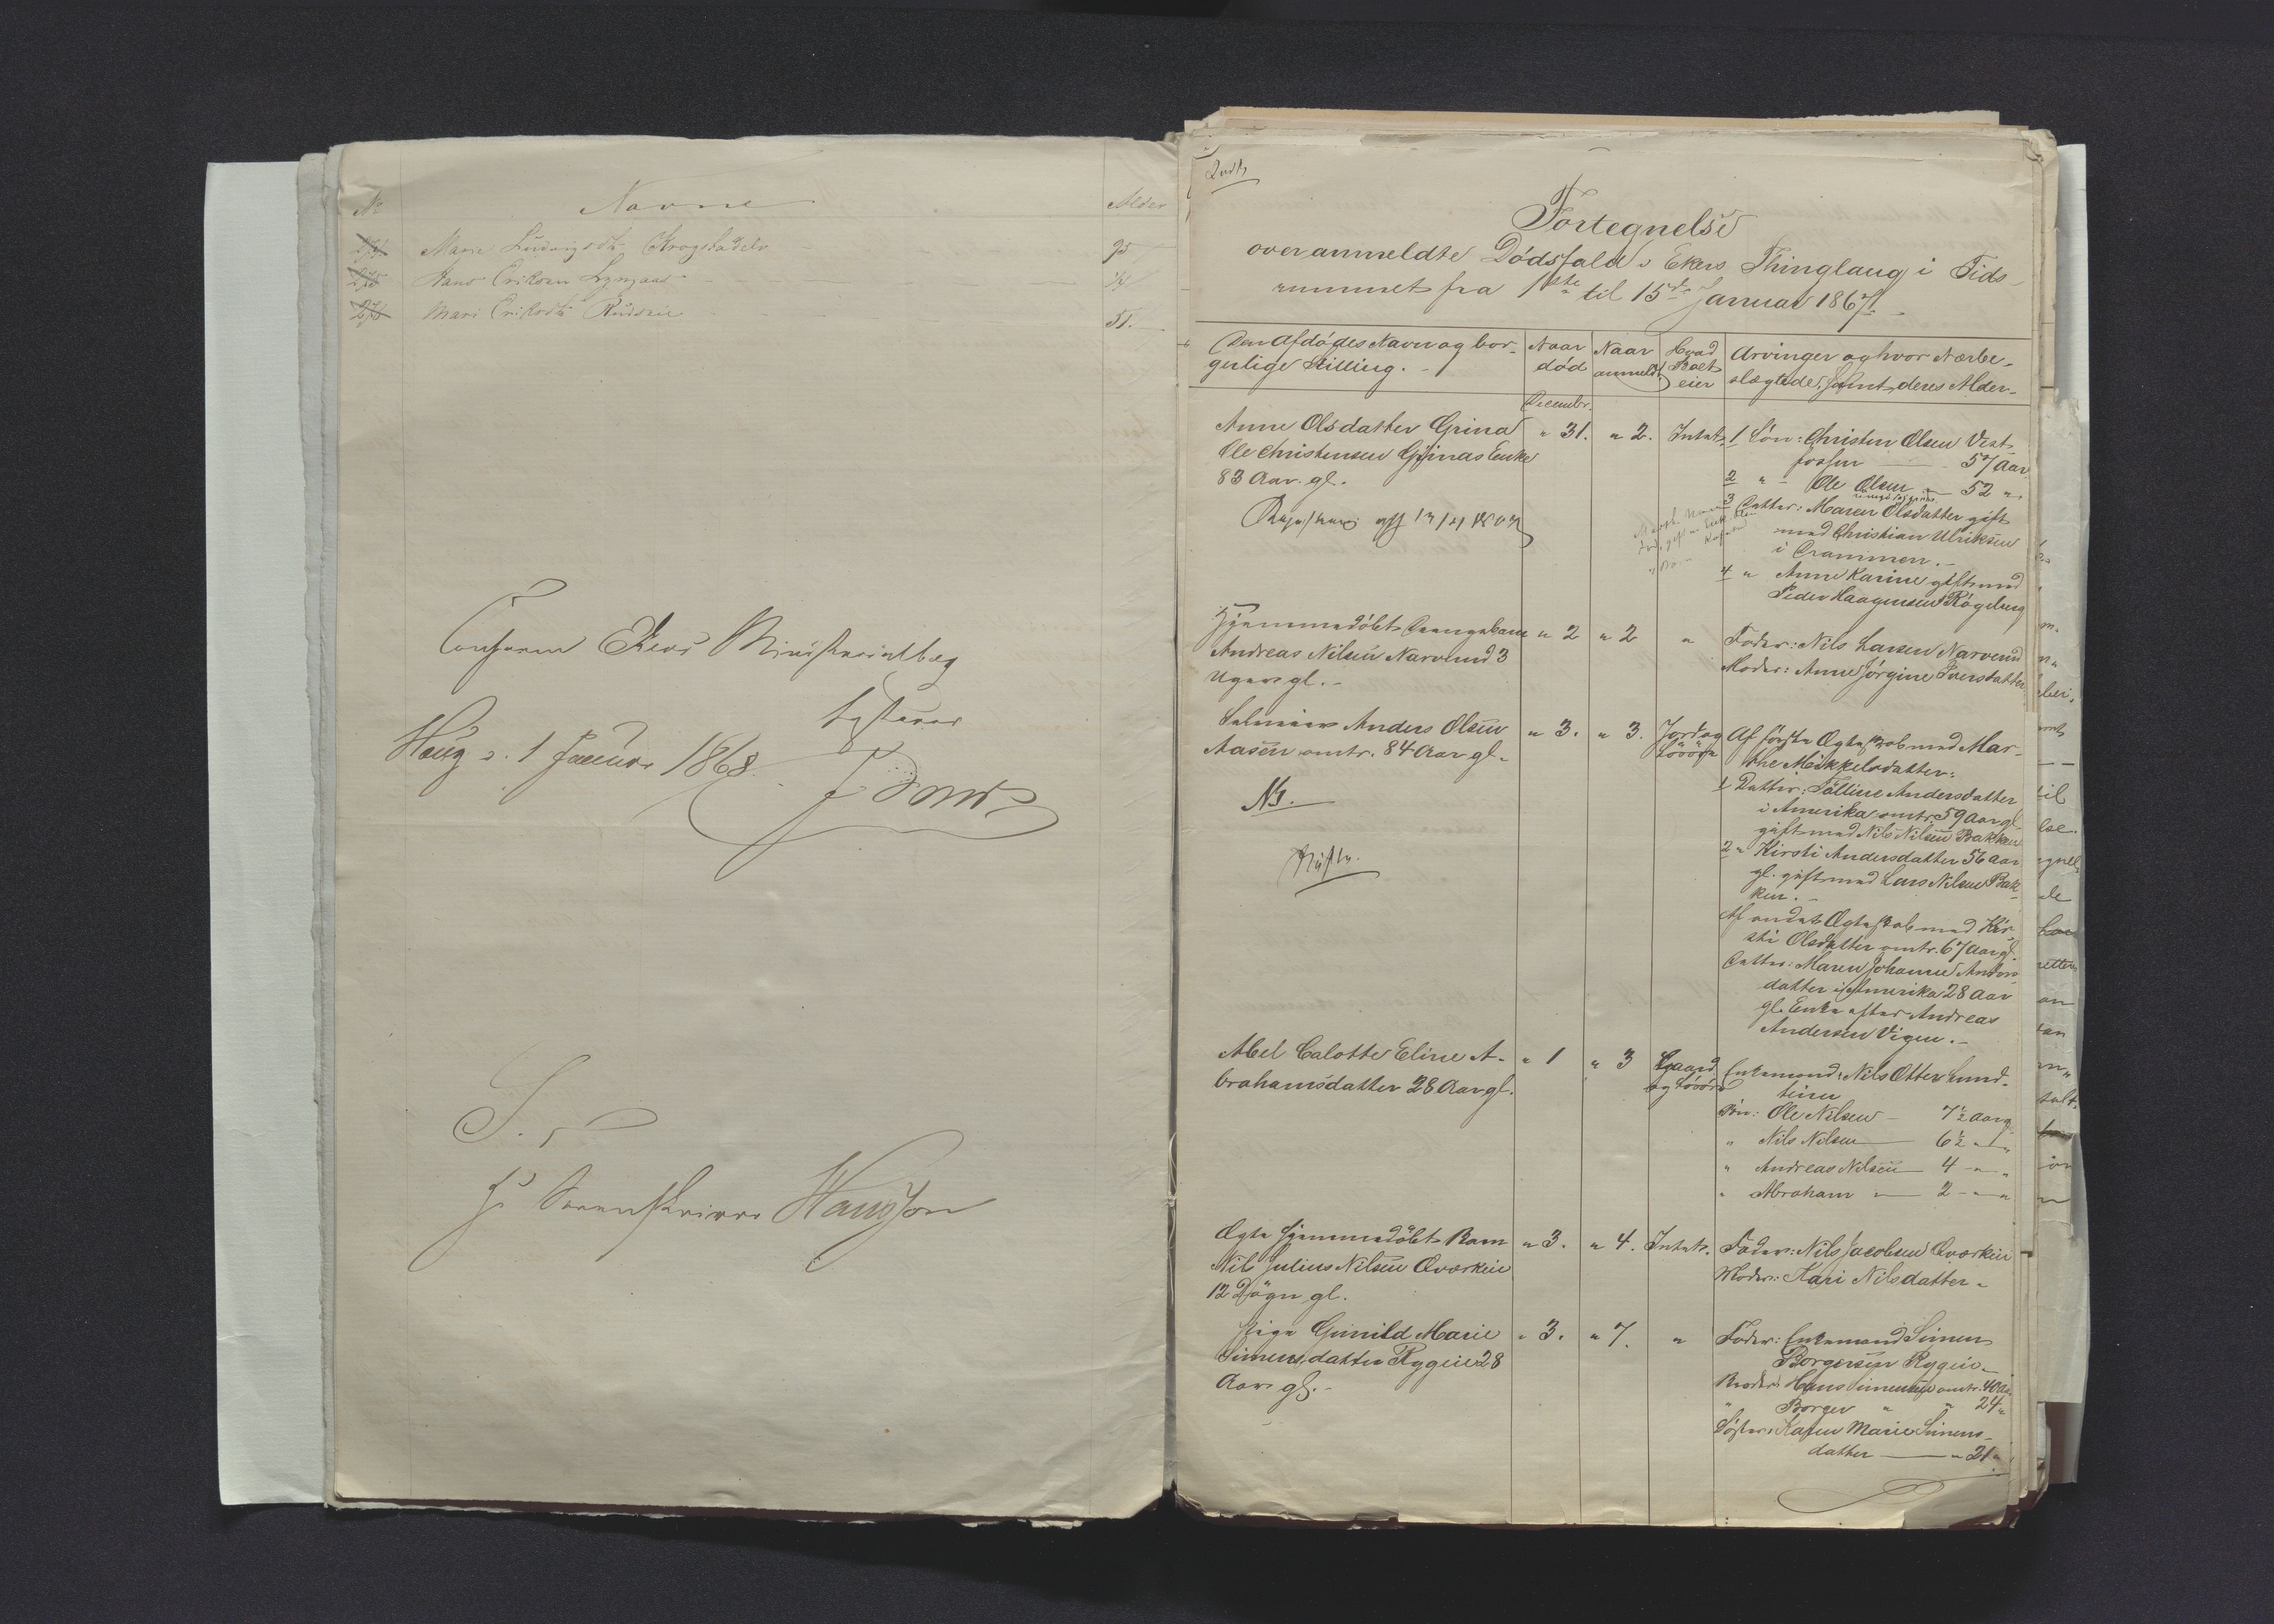 No Navne Alder
274 Marie Ludvigsdt. Krogstadelv 95
275 Hans Eriksen 14
276 Mari Eriksdt. 51.
Conform Ekers Ministerialbog
bevidner
Haug d. 1 Januar 1868.
S. T.
Hr Sorenskriver
Fortegnelse
over anmeldte Dødsfald i Ekers Thinglaug i Tids-
rummet fra 1ste til 15de Januar 1867.
Den Afdødes Navn og bor- Naar Naar Hvad Arvinger og hvor Nærbe-
gerlige Stilling. død anmeldt Boet eier slægtede, samt deres Alder
Decembr.
Anne Olsdatter Grina " 31. " 2. Intet. 1 Søn: Christen Olsen Vest-
Ole Christensen Grinas Enke fossen 57 Aar
83 Aar gl. 2 " Ole Olsen 52 "
3 Datter: Maren Olsdatter gift
med Christian Ulriksen
i Drammen.
4 " Anne Karine gift med
Peder Haagensen Røgeberg
Hjemmedøbt Drengebarn " 2 " 2 " Fader: Nils Larsen Narverud
Andreas Nilsen Narverud 3 Moder: Anne Jørgine Iversdatter
Uger gl.
Selveier Anders Olsen " 3. " 3. Jord og Løsøre Af første Ægteskab med Mar-
Aasen omtr. 84 Aar gl. the Mikkelsdatter:
1 Datter: Andersdatter
NB. i Amerika omtr. 59 Aar gl.
gift med Nils Nilsen Bakken
2 " Kirsti Andersdatter 56 Aar
gl. gift med Lars Nilsen Bak-
ken.
Af andet Ægteskab med Kir-
sti Olsdatter omtr. 67 Aar gl.
Datter: Maren Johanne Anders-
datter i Amerika 28 Aar
gl. Enke efter Andreas
Andersen Vigen.
Abel Calotte Eline A- " 1 " 3 Gaard Enkemand: Nils Otter
brahamsdatter 28 Aar gl. og Løsøre
Søn: Ole Nilsen 7½ Aar gl.
" Nils Nilsen 6½ " "
" Andreas Nilsen 4 " "
" Abraham " 2 " "
Ægte hjemmedøbt Barn " 3. " 4. Intet. Fader: Nils Jacobsen Qværkeie
Nils Julius Nilsen Qværkeie Moder: Kari Nilsdatter
12 Døgn gl.
Pige Gunild Marie " 3. " 7. " Fader: Enkemand Simen
Simensdatter Rygeie 28 Borgersen Rygeie
Aar gl. Broder: Hans Simensen omtr. 40 Aar
" Borger " " 24 "
Søster: Karen Marie Simens-
datter " 21 "